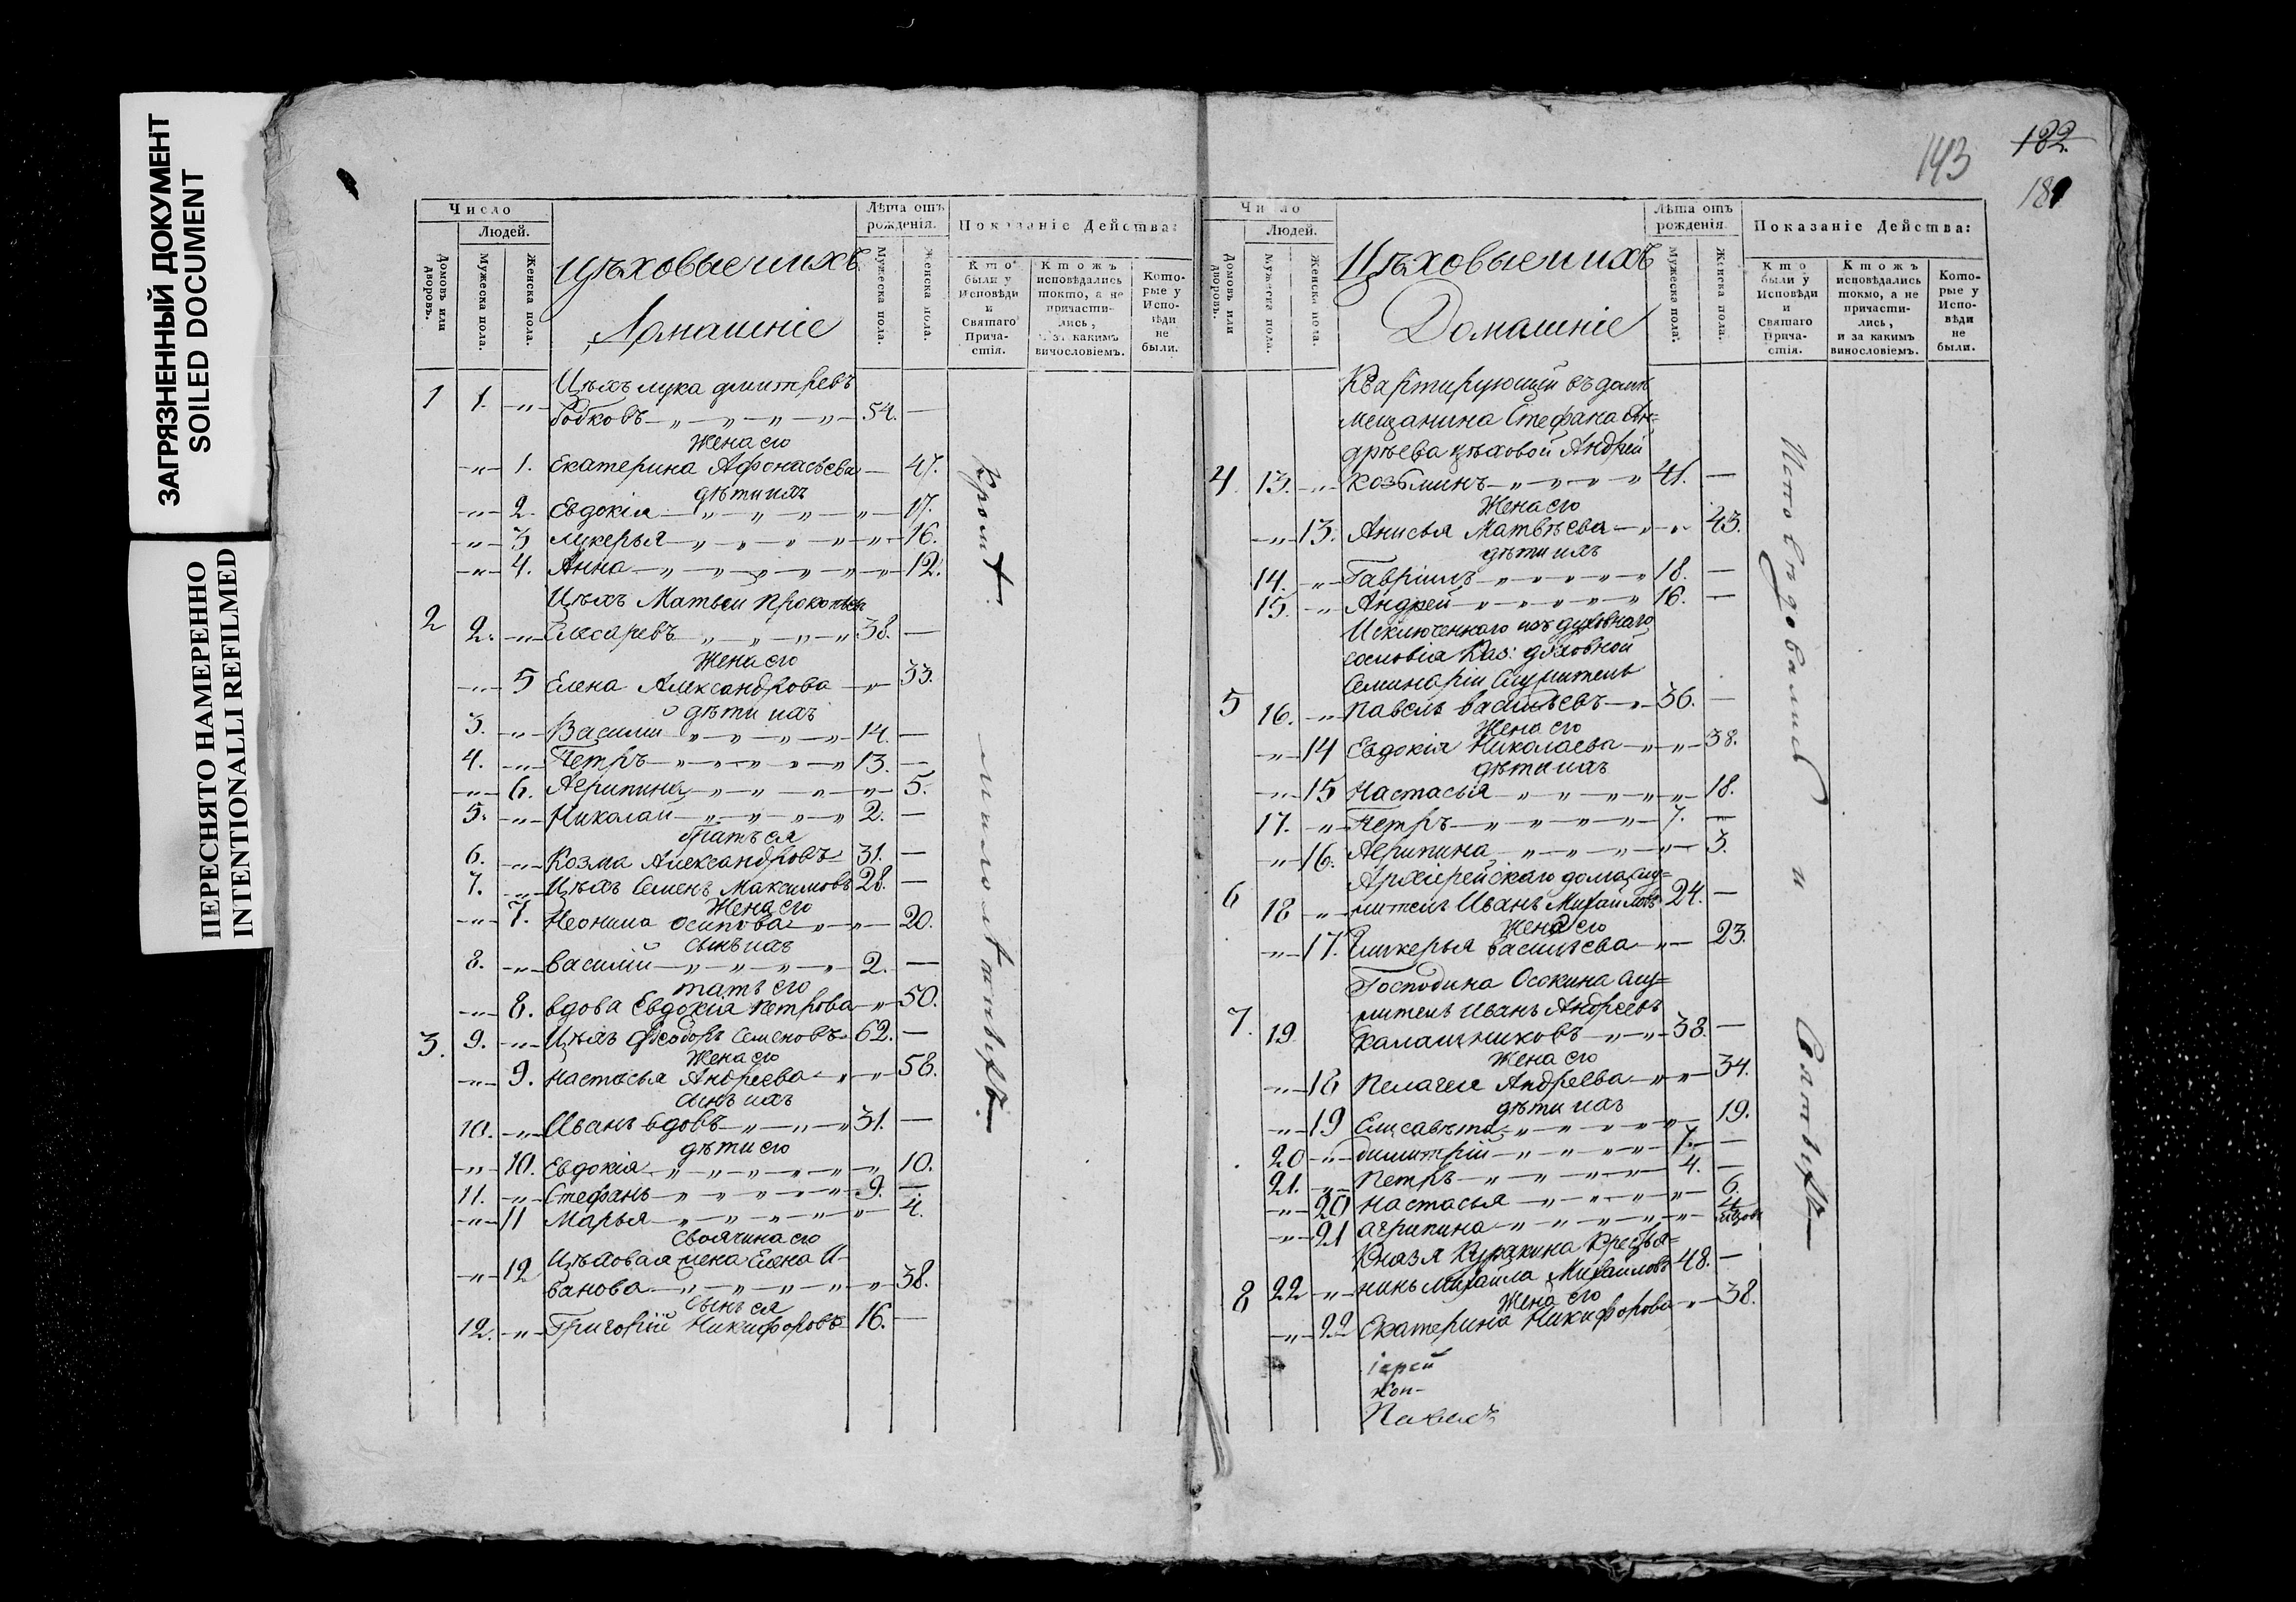 ЗАГРЯЗНЕННЫЙ ДОКУМЕНТ
SOILED DOCUMENT
ПЕРЕСНЯТО НАМЕРЕННО
INTENTIONALLI REFILMED
Число
Людей.
Домовъ или дворовъ.
Мужеска пола.
Женска пола.
Цѣховые и ихъ
Домашніе
Лѣта отъ рожденія.
Мужеска пола.
Женска пола.
Показаніе Действа:
Кто были у Исповѣди и Святаго Прича-стія.
Ктожъ исповѣдались токмо, а не причасти-лись, и за какимъ винословіемъ.
Кото-рые у Испо-вѣди не были.
Цѣхъ лука дмитревъ
1 1. -„- Бобковъ -„-„-„-„- 54. —
Жена его
-„- 1. Екатерина Афонасьева — 47.
дѣти ихъ
-„- 2. Евдокія -„-„-„-„- 17.
-„- 3 лукерья -„-„-„-„- 16.
-„- 4. Анна -„-„-„-„-„- 12.
Цѣхъ Матвеи Прокопьев
2 2. -„- Елесаревъ -„-„-„-„ 38. —
Жена его
-„- 5 Елена Александрова -„- 33.
дѣти ихъ
3. -„- Василии -„-„-„-„- 14. —
4. -„- Петръ -„-„-„-„- 13. —
-„- 6. Агрипина -„-„-„-„- 5.
5. -„- Николаи -„-„-„-„- 2. —
братъ ея
6. -„- Козма Александровъ 31. —
7. -„- Цѣхъ Семенъ Максимовъ 28. —
Жена его
-„- 7. Неонила Осипова -„-„- 20.
сынъ ихъ
8. -„- василіи -„-„-„-„- 2. —
мать его
-„- 8. вдова Евдокіа Петрова -„- 50.
3. 9. -„- Цѣхъ Феодоръ Семеновъ 62. —
Жена его
-„- 9. настасья Андреева -„-„- 58.
сынъ ихъ
10. -„- Иванъ вдовъ -„-„-„ 31. —
дѣти его
-„- 10. Евдокія -„-„-„-„-„- 10.
11. -„- Стефанъ -„-„-„-„- 9. —
-„- 11 Марья -„-„-„-„-„- 4.
своячина его
-„- 12 Цѣховая жена Елена И-
ванова -„-„-„-„-„ 38.
сынъ ея
12. -„- Григоріи Никифоровъ 16. —
143
182.
181
Число
Людей.
Домовъ или дворовъ.
Мужеска пола.
Женска пола.
Цѣховые и ихъ
Домашніе
Лѣта отъ рожденія.
Мужеска пола.
Женска пола.
Показаніе Действа:
Кто были у Исповѣди и Святаго Прича-стія.
Ктожъ исповѣдались токмо, а не причасти-лись, и за какимъ винословіемъ.
Кото-рые у Испо-вѣди не были.
Квартирующіи въ домѣ
мещанина Стефана Ан=
дрѣева цѣховой Андреи
4. 13. -„- козьминъ -„-„-„-„ 41. —
Жена его
-„- 13. Анисья Матвѣева -„-„- 43.
дѣти ихъ
14. -„- Гавріилъ -„-„-„-„- 18. —
15. -„- Андреи -„-„-„-„- 16. —
Исключеннаго изъ духовнаго
сословія Каз: духовной
Семинаріи служитель
5 16. -„- Павелъ васильевъ -„- 36. —
Жена его
-„- 14 Евдокія Николаева -„-„- 38.
дѣти ихъ
-„- 15 Настасья -„-„-„-„-„- 18.
17. -„- Петръ -„-„-„-„- 7. —
-„- 16. Агрипина -„-„-„-„- 3.
Архіерейскаго дома слу=
6 18 -„- житель Иванъ Михаиловъ 24. —
Жена его
-„- 17. Гликерья васильева -„- 23.
Господина Осокина слу=
житель Иванъ Андреевъ
7. 19 Калашниковъ -„-„- 38. —
Жена его
-„- 18 Пелагея Андреева -„-„- 34.
дѣти ихъ
-„- 19 Елисавета -„-„-„-„- 19.
20 -„- димитріи -„-„-„-„- 7. —
21. -„- Петръ -„-„-„-„- 4. —
-„- 20 настасья -„-„-„-„- 6.
-„- 21 агрипина -„-„-„-„-
Князя Куракина Крестья=
8 22 -„- нинъ Михаила Михаиловъ 48. —
Жена его
-„- 22 Екатерина Никифорова -„- 38.
Исповѣдовались и Святыхъ
іереи
Поп-
Павелъ